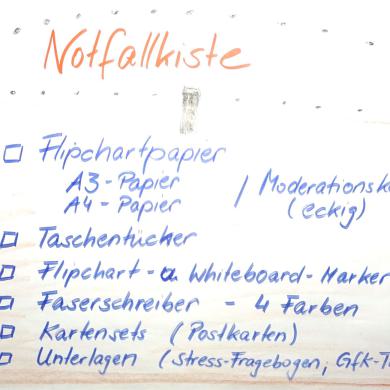 Notfallkiste
Flipchartpapier
A3-Papier / Moderationsk
A4-Papier (eckig)
Taschentücher
Flipchart- u. Whiteboard-Marker
Faserschreiber - 4 Farben
Kartensets (Postkarten)
Unterlagen (Stress-Fragebogen, GfK-T